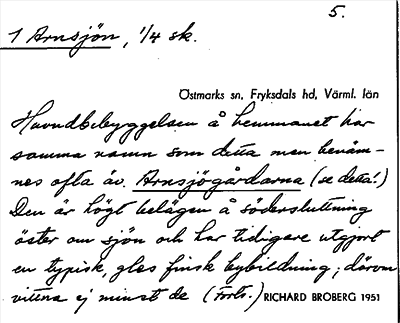 5.
1 Arnsjön, 1/4 sk.
Östmarks sn, Fryksdals hd, Värml. län
Huvudbebyggelsen å hemmanet har
samma namn som detta men benäm-
nes ofta äv. Arnsjögårdarna (se detta!)
Den är högt belägen å södersluttning
öster om sjön och har tidigare utgjort
en typisk, gles finsk bybildning; därom
vittna ej minst de (Forts.) RICHARD BROBERG 1951